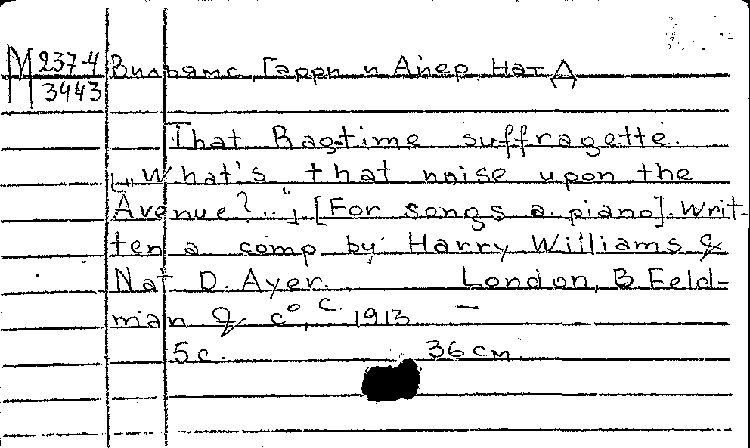 М 237-4
3443
Вильямс, Гарри и Айер, Нат Д
That Ragtime suffragette.
„What's that noise upon the
Avenue?..", [For songs a. piano]. Writ-
ten a. comp. by Harry Williams &
Nat D. Ayer. London, B. Feld-
man & c°, c. 1913. —
5 с. 36 см.